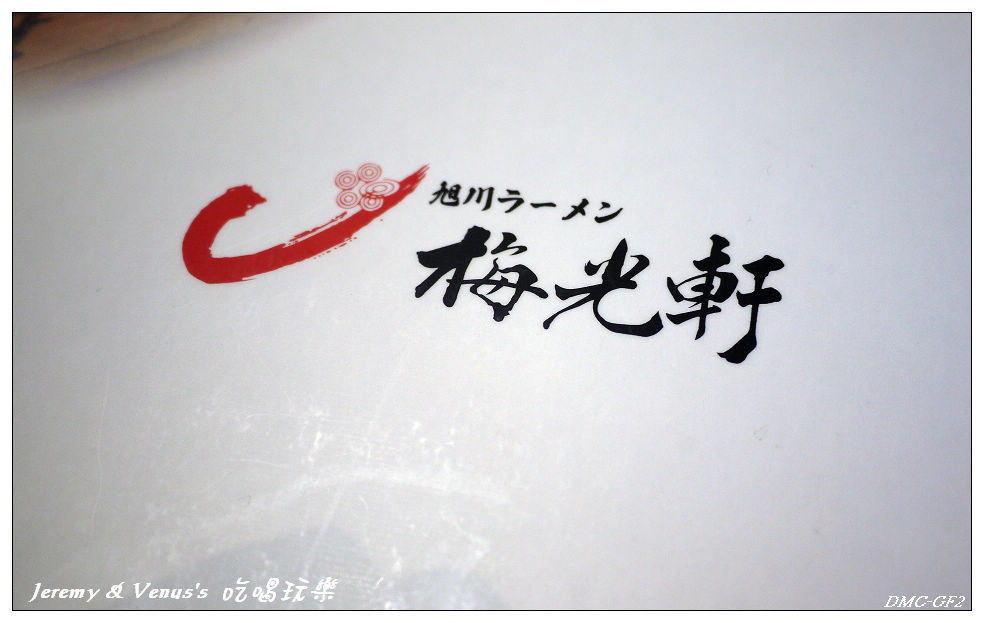 旭川ラーメン
梅光軒
Jeremy & Venus's 吃喝玩樂
DMC-GF2